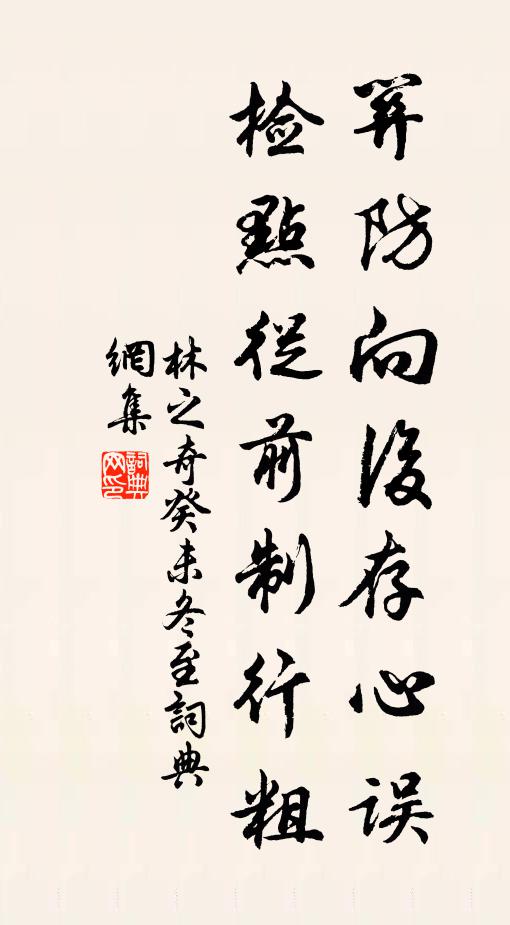 筭防向後存心误
检點從前制行粗
林之奇癸未冬至詞典
網集
詞典
网印